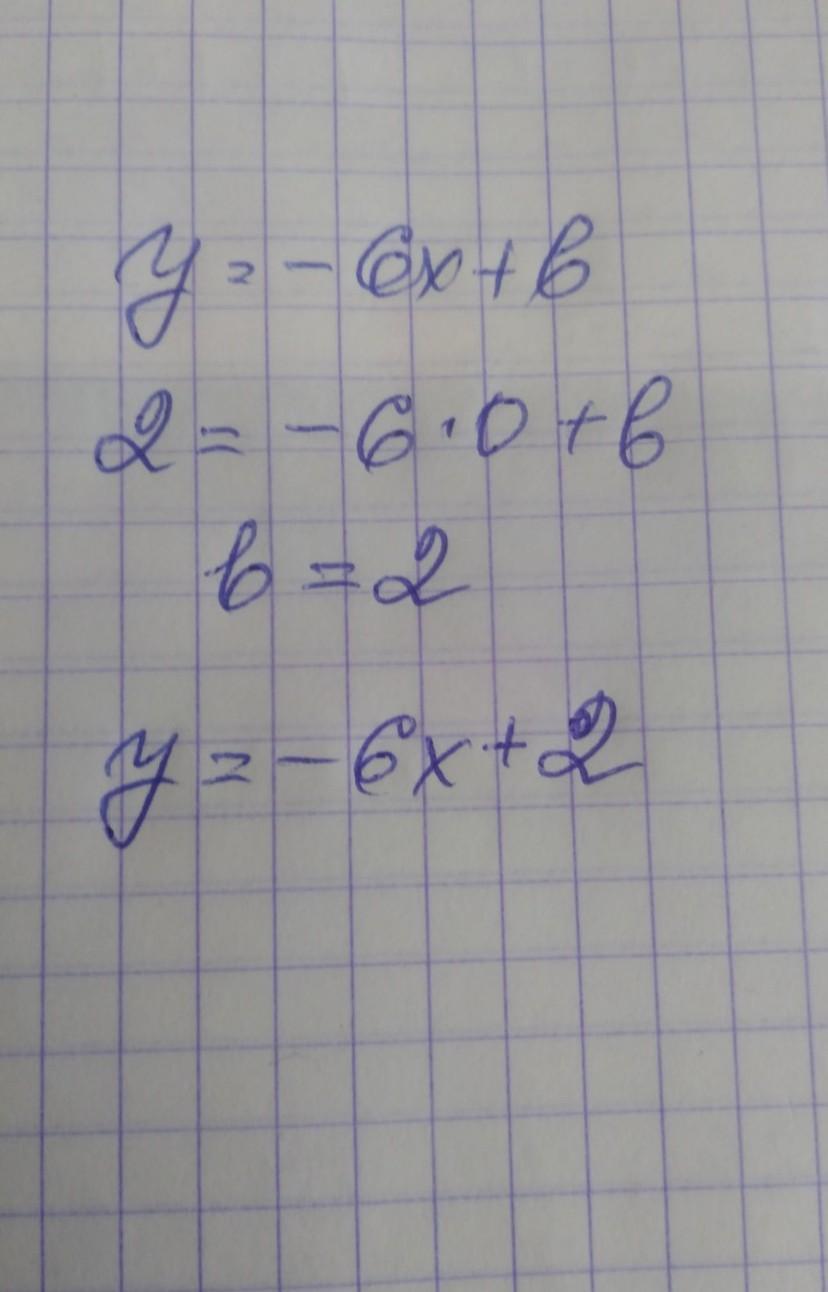 y = - 6x + b
2 = - 6 · 0 + b
b = 2
y = - 6x + 2